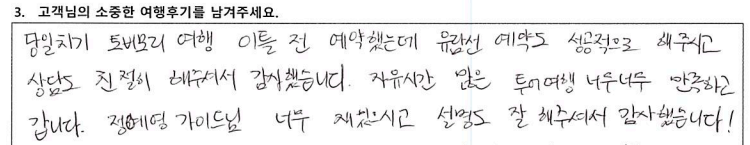 3. 고객님의 소중한 여행후기를 남겨주세요.
당일치기 토버모리 여행 이틀 전 예약했는데 유람선 예약도 성공적으로 해주시고
상담도 친절히 해주셔서 감사했습니다. 자유시간 많은 투어여행 너무너무 만족하고
갑니다. 정예영 가이드님 너무 재밌으시고 설명도 잘 해주셔서 감사했습니다!